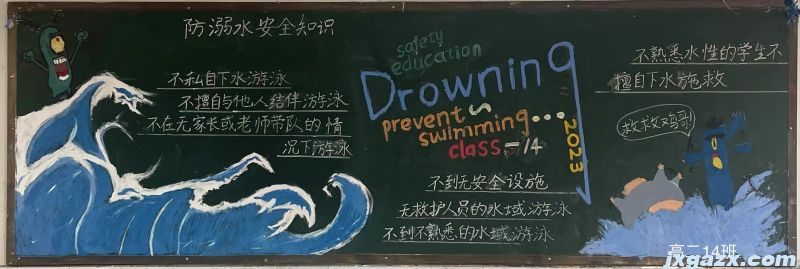 防溺水安全知识
不私自下水游泳
不擅自与他人结伴游泳
不在无家长或老师带队的情
况下游泳
safety
education
Drowning
prevent
swimming...
class-14
2023
不到无安全设施
无救护人员的水域游泳
不到不熟悉的水域游泳
不熟悉水性的学生不
擅自下水施救
救救鸡哥!
高二14班
jxgazx.com